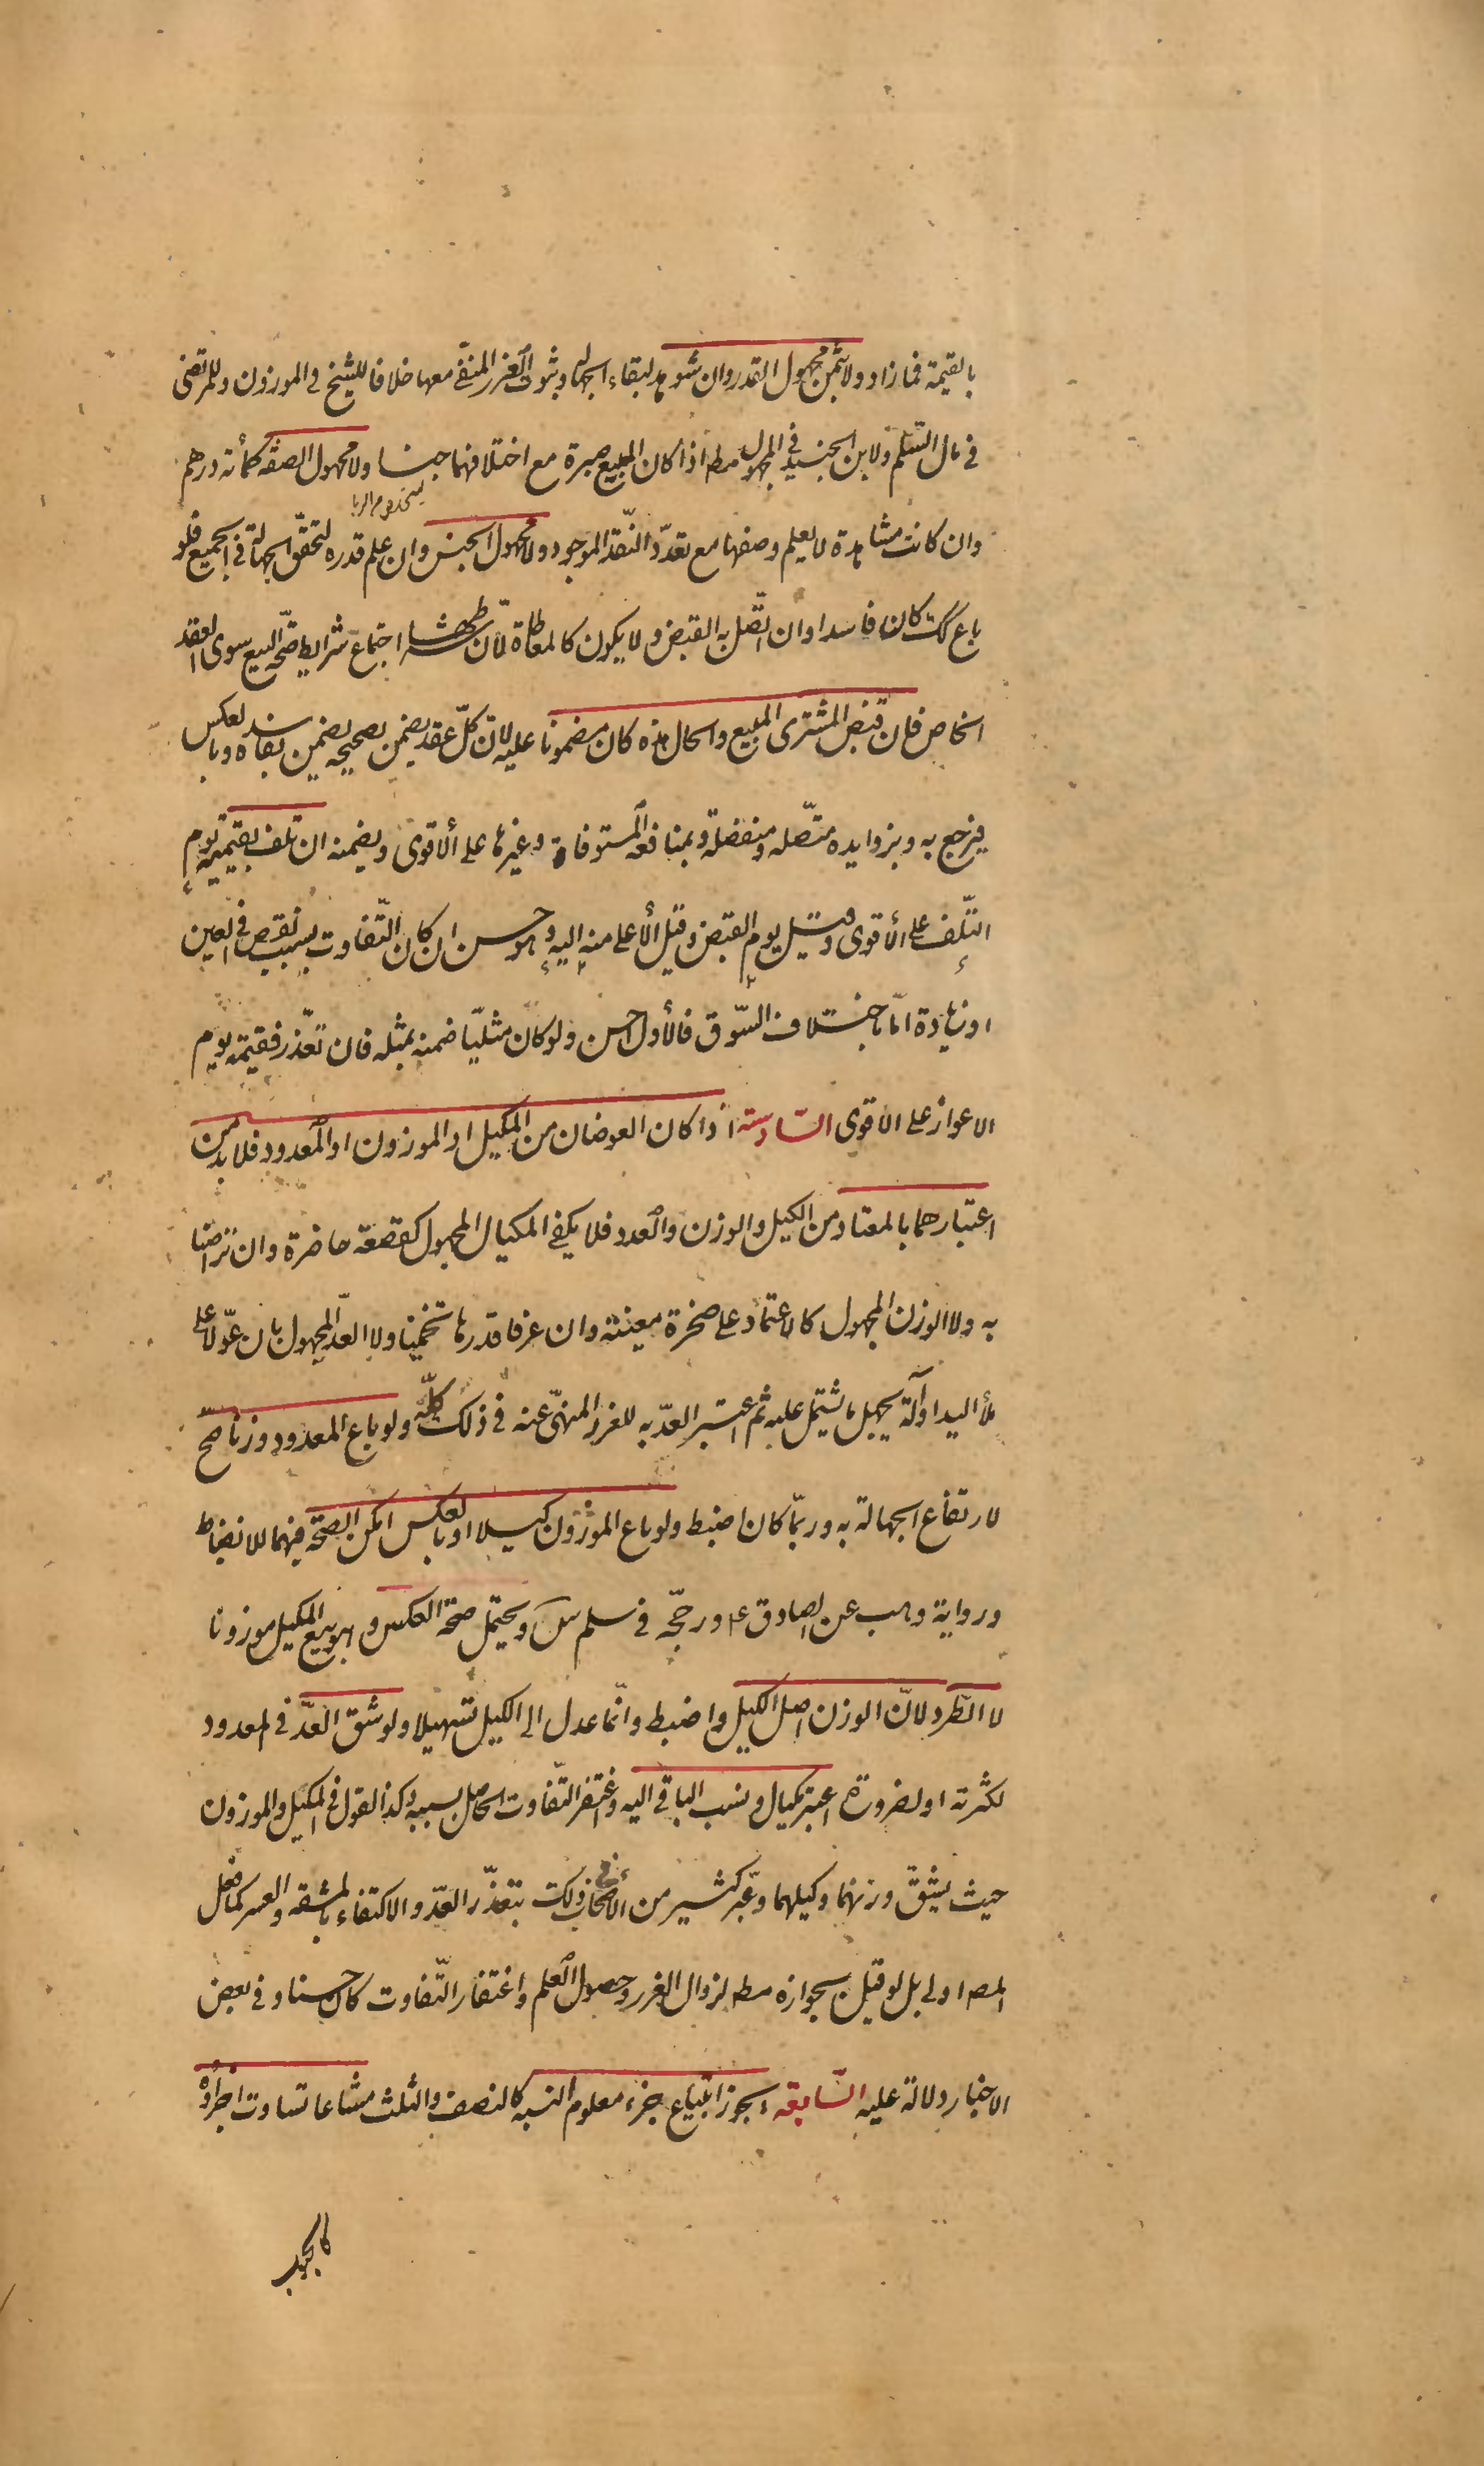 بالقيمة فما زاد ولا بثمن مجهول القدر وان شوهد لبقاء الجهالة وثبوت الغرر المنفي معها خلافا للشيخ في الموزون وللمرتضى
في مال السلم ولابن الجنيد في المجهول مط اذا كان المبيع صبرة مع اختلافهما جنسا ولا مجهول الصفة كمأته درهم
وان كانت مشاهدة لا يعلم وصفها مع تعدّد النّقد الموجود ولا مجهول الجنس وان علم قدره لتحقّق الجهالة في الجميع فلو
باع كك كان فاسدا وان اتّصل به القبض ولا يكون كالمعاطاة لأن شرطها اجتماع شرايط صحّة البيع سوى العقد
الخاص فان قبض المشترى المبيع والحال هذه كان مضمونا عليه لان كلّ عقد يضمن بصحيحه يضمن بفاسده وبالعكس
فيرجع به وبزوايده متّصله ومنفصلة وبمنافعه المستوفاة وغيرها على ألاقوى ويضمنه ان تلف بقيمته يوم
التّلف على ألاقوى وقيل يوم القبض وقيل ألاعلى منه اليه وهو حسن ان كان التّفاوت بسبب نقص في العين
او زيادة امّا باختلاف السّوق فالأول احسن ولو كان مثليّا ضمنه بمثله فان تعّذر فقيمته يوم
الاعواز على الاقوى السّادسة اذا كان العوضان من المكيل او الموزون او المعدود فلا بد من
اعتبارهما بالمعتاد من الكيل والوزن والعدد فلا يكفى المكيال المجهول كقصعة حاضرة وان تراضيا
به ولا الوزن المجهول كالاعتماد على صخرة معينة وان عرفا قدرها تخمينا ولا العدّ المجهول بان عوّلا على
ملأ اليد او آلة يجهل ما يشتمل عليه ثم اعتبر العدّ به للغرر المنهىّ عنه في ذلك كلّه ولو باع المعدود وزنا صحّ
لارتفاع الجهالة به وربّما كان اضبط ولو باع الموزون كيلا او بالعكس امكن الصحّة فيهما للانضباط
ورواية وهب عن الصادق ع ورجّحه في سلم س ويحتمل صحّة العكس وهو بيع المكيل موزونا
لا الطّرد لانّ الوزن اصل الكيل واضبط وانّما عدل الى الكيل تسهيلا ولو شق العدّ في المعدود
لكثرته او لضرورة اعتبر مكيال ونسب الباقي اليه واغتفر التّفاوت الحاصل بسببه وكذا القول في المكيل والموزون
حيث يشقّ وزنهما وكيلهما وعبّر كثير من ألاصحاب في ذلك بتعذّر العدّ والاكتفاء بالمشقه والعسر كما فعل
المصـ اولى بل لو قيل بجوازه مطـ لزوال الغرر وحصول العلم واغتفار التّفاوت كان حسنا وفي بعض
الاخبار دلالة عليه السّابعه يجوز ابتياع جزء معلوم النسبه كالنصف والثلث مشاعا تساوت اجزاؤه